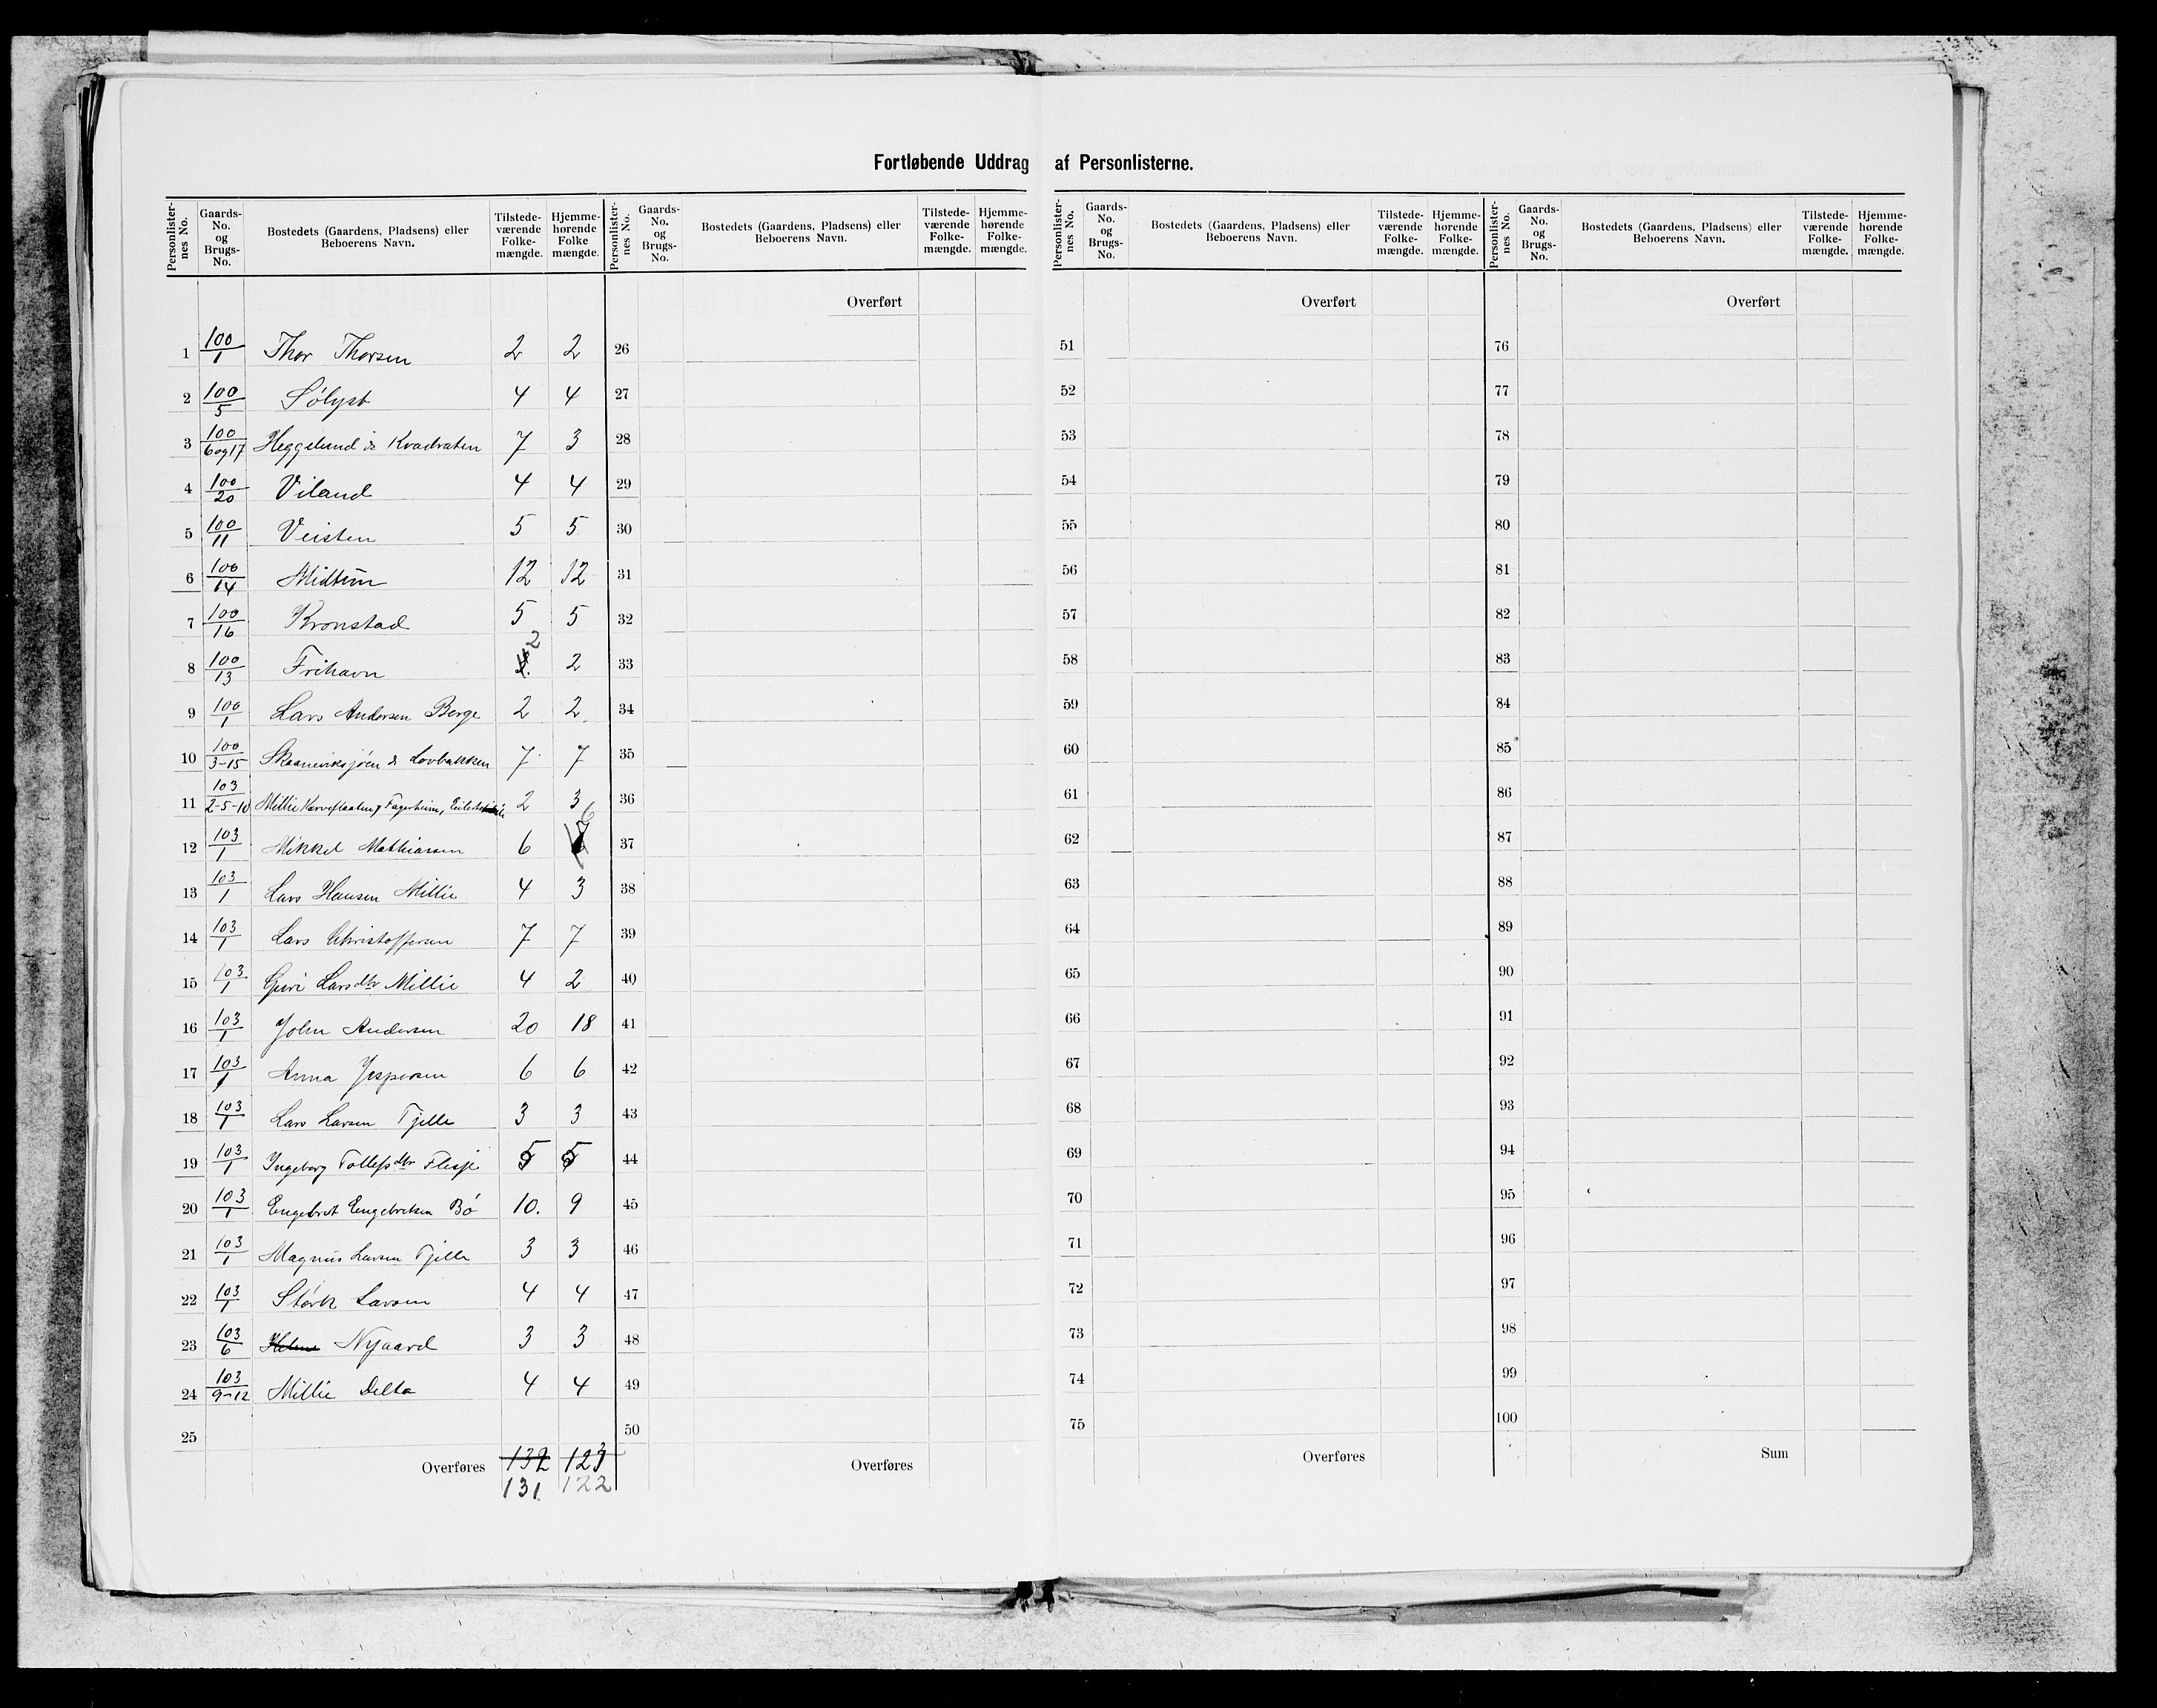 Fortløbende Uddrag af Personlisterne.
Personlister-nes No. | Gaards-No. og Brugs-No. | Bostedets (Gaardens, Pladsens) eller Beboerens Navn. | Tilstede-værende Folke-mængde. | Hjemme-hørende Folke mængde.
1 100/1 Thor Thorsen 2 2
2 100/5 Sólyst 4 4
3 100/6og17 Heggelund & Kvadraten 7 3
4 100/20 Viland 4 4
5 100/11 Veisten 5 5
6 100/14 Midtun 12 12
7 100/16 Kronstad 5 5
8 100/13 Frihavn 2 2
9 100/1 Lars Andersen Berge 2 2
10 100/3-15 Skaaneviksjøen & Lovbakken 7 7
11 103/2-5-10 Millie Fagerheim, 2 3
12 103/1 Mikkel Mathiassen 6 6
13 103/1 Lars Hansen Millie 4 3
14 103/1 Lars Christoffersen 7 7
15 103/1 Guri Larsdtr Millie 4 2
16 103/1 John Andersen 20 18
17 103/1 Anna Jespersen 6 6
18 103/1 Lars Larsen Tjelle 3 3
19 103/1 Ingeborg Tollefsdtr Flesje 5 5
20 103/1 Engebret Engebretsen Bó 10. 9
21 103/1 Magnus Larsen Tjelle 3 3
22 103/1 Størk Larsen 4 4
23 103/6 Nygaard 3 3
24 103/9-12 Millie Delta 4 4
25
Overføres 132 123
131 122
Personlister-nes No. | Gaards-No. og Brugs-No. | Bostedets (Gaardens, Pladsens) eller Beboerens Navn. | Tilstede-værende Folke-mængde. | Hjemme-hørende Folke-mængde.
Overført
26
27
28
29
30
31
32
33
34
35
36
37
38
39
40
41
42
43
44
45
46
47
48
49
50
Overføres
Personlister-nes No. | Gaards-No. og Brugs-No. | Bostedets (Gaardens, Pladsens) eller Beboerens Navn. | Tilstede-værende Folke-mængde. | Hjemme-hørende Folke-mængde.
Overført
51
52
53
54
55
56
57
58
59
60
61
62
63
64
65
66
67
68
69
70
71
72
73
74
75
Overføres
Personlister-nes No. | Gaards-No. og Brugs-No. | Bostedets (Gaardens, Pladsens) eller Beboerens Navn. | Tilstede-værende Folke-mængde. | Hjemme-hørende Folke-mængde.
Overført
76
77
78
79
80
81
82
83
84
85
86
87
88
89
90
91
92
93
94
95
96
97
98
99
100
Sum